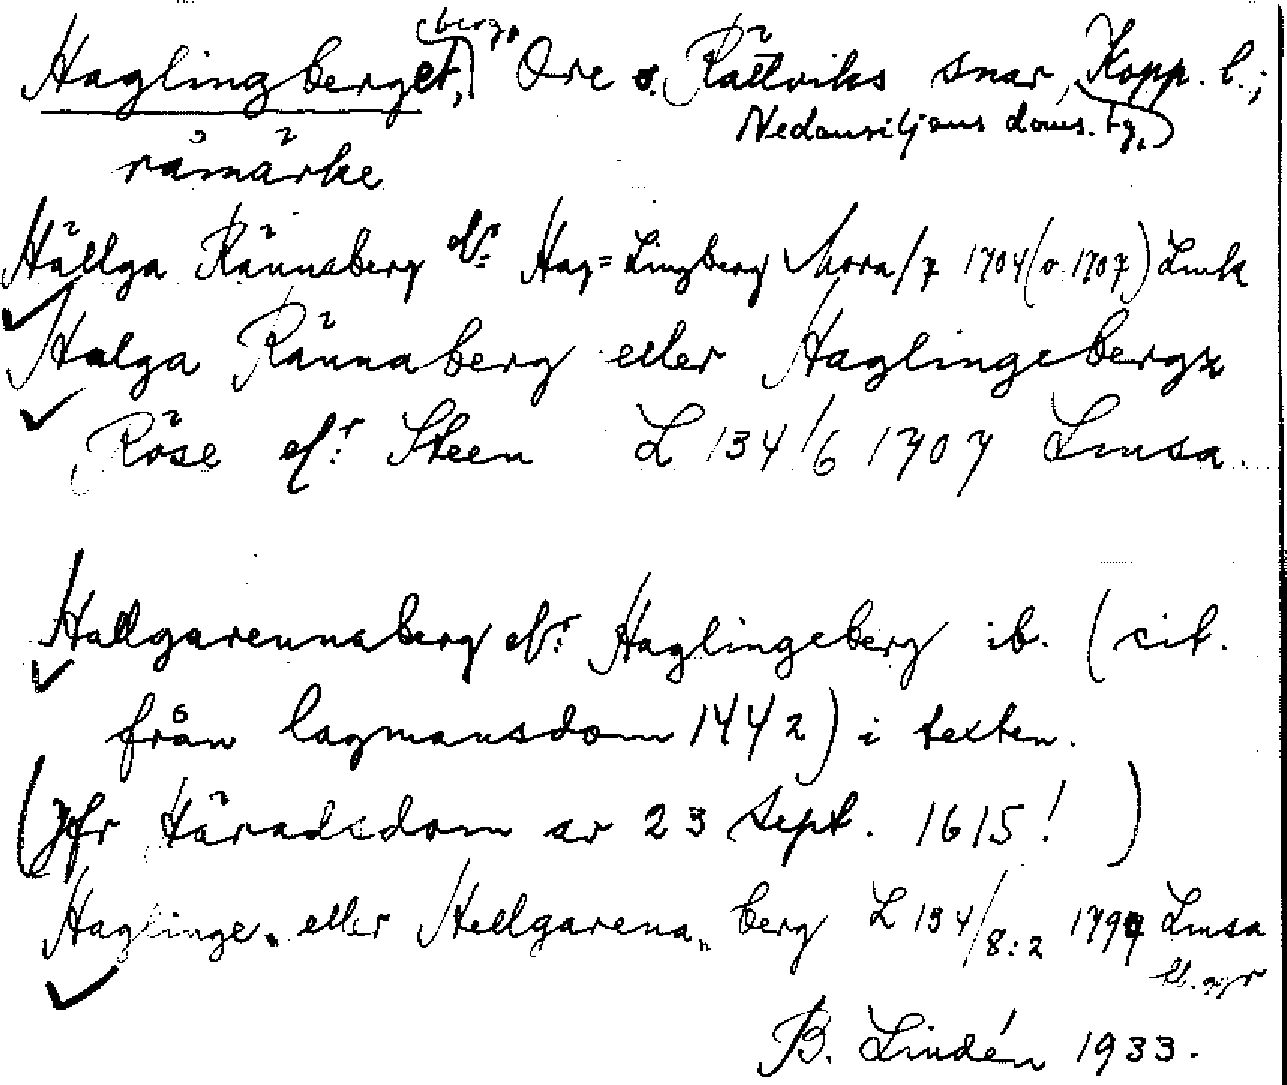 Haglingberget, berg, Ore o. Rättviks snar, Kopp. l.;
Nedansiljans doms. tg,
råmärke
Hällga Rännaberg elr: Hag=Lingberg Mora/7 1704 (o. 1707) Lmk
Halga Rännaberg eller Haglingebergz
Röse elr: Steen L 134/6 1707 Lmsa.
Hallgarennaberg elr: Haglingeberg ib. (cit.
från lagmansdom 1442) i texten.
(Jfr Häradsdom av 23 Sept. 1615! )
Haglinge„ eller Hellgarena„ berg L 134/8:2 Lmsa
B. Lindén 1933.